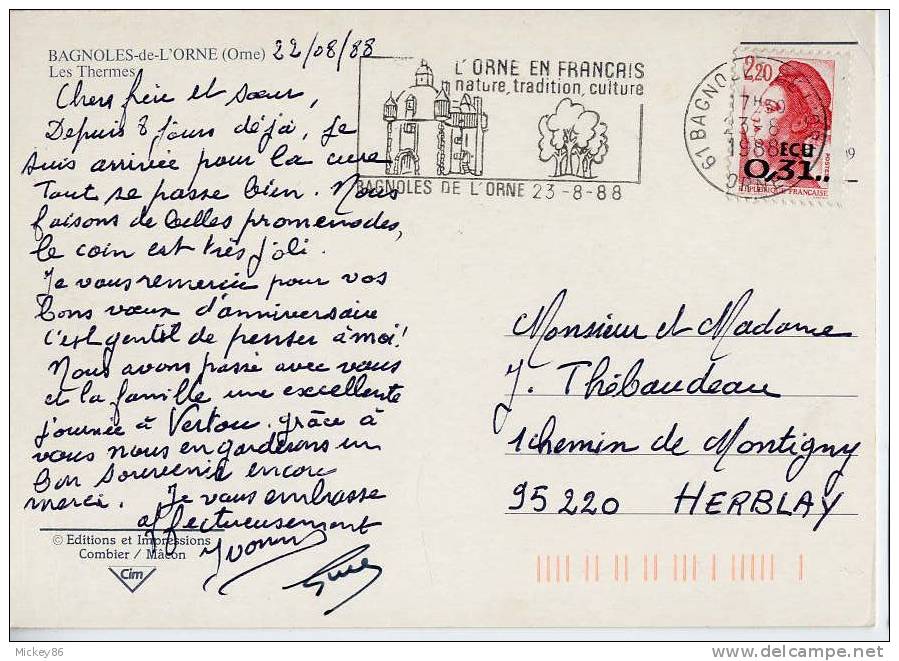 BAGNOLES-de-L'ORNE (Orne) 22/08/88
Les Thermes
Chers frère et sœur,
Depuis 8 jours déjà, je
suis arrivée pour la cure
Tout se passe bien. Nous
faisons de belles promenades,
le coin est très joli.
Je vous remercie pour vos
bons vœux d'anniversaire
c'est gentil de penser à moi!
Nous avons passé avec vous
et la famille une excellente
journée à Vertou. grâce à
vous nous en garderons un
bon souvenir encore
merci. Je vous embrasse
affectueusement
Yvonne
© Editions et Impressions
Combier / Mâcon
Cim
L'ORNE EN FRANCAIS
nature, tradition, culture
BAGNOLES DE L'ORNE 23-8-88
61 BAGNO
1988
ORNE
2,20
ECU
0,31
POSTES
REPUBLIQUE FRANCAISE
Monsieur et Madame
J. Thébaudeau
1 chemin de Montigny
95220 HERBLAY
Mickey86
www.delcampe.net